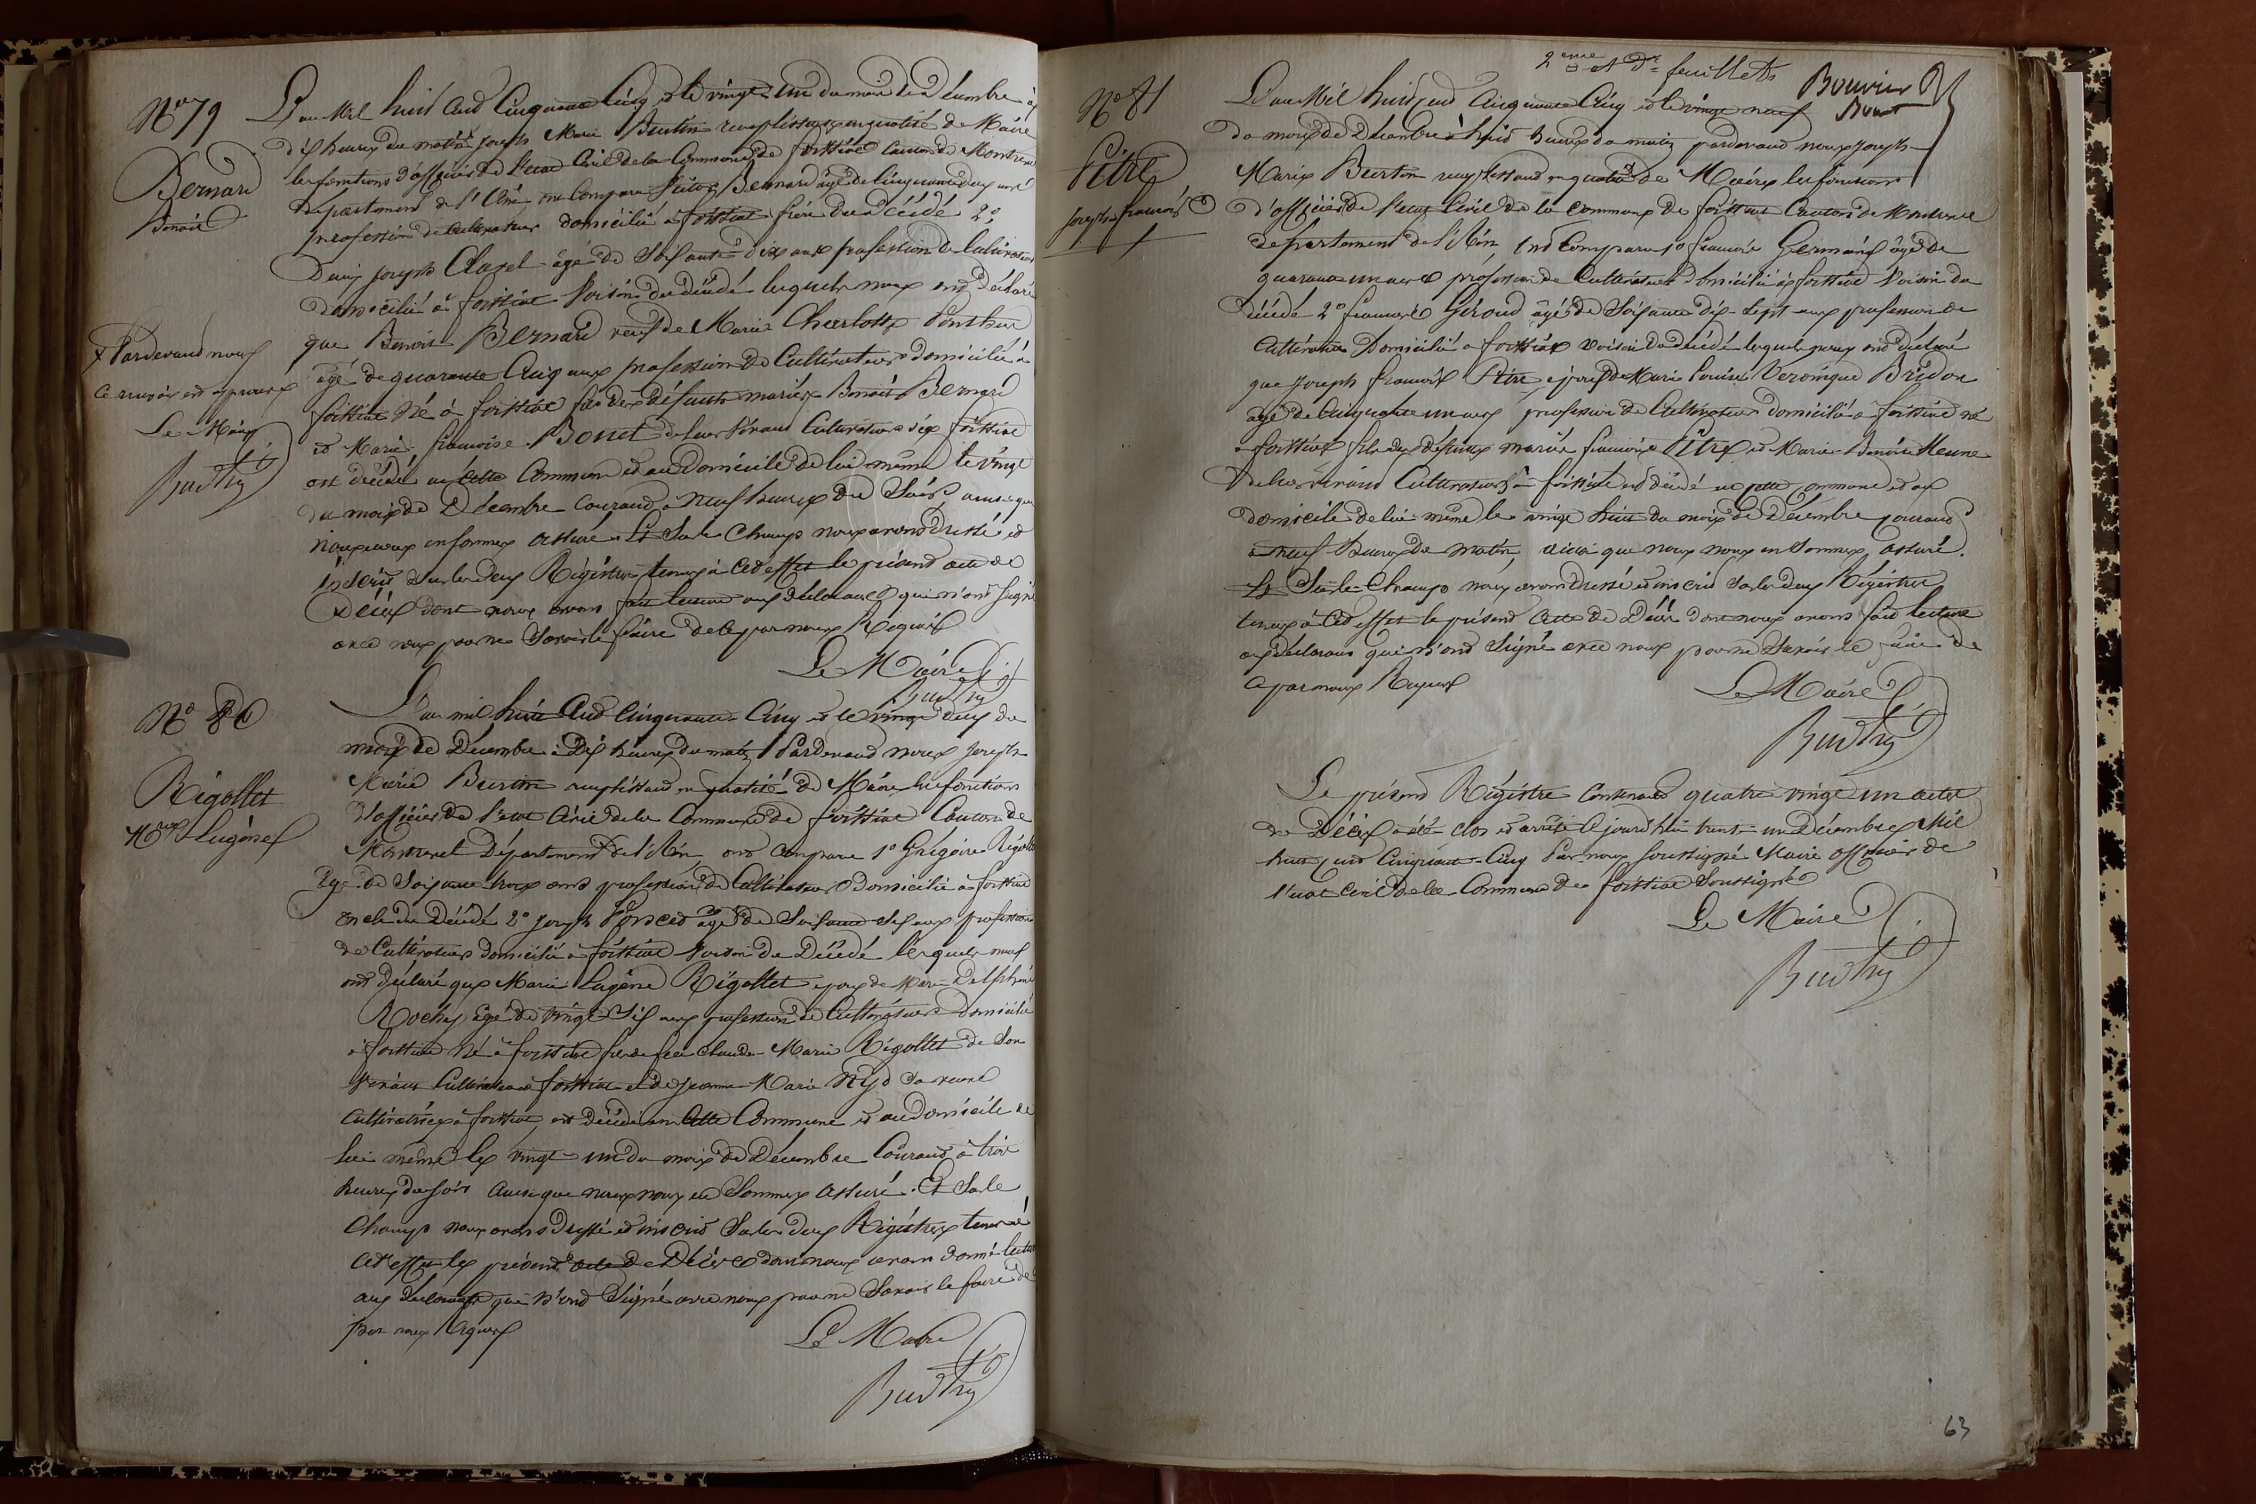 N° 79
Bernard
Benoit
L'an Mil huit Cent Cinquante Cinq et le vingt un du mois de décembre à
dix heures du matin + joseph Marie Burtin remplissant en qualité de Maire
les fonctions d'officier de l'état Civil de la Commune de foissiat Canton de Montrevel
département de l'Ain ont Comparu Bernard âgé de Cinquante deux ans
profession de Cultivateur domicilié à foissiat frère du décédé 2°
Denis joseph Clavel âgé de Soixante dix ans profession de Cultivateur
domicilié à foissiat Voisin du décédé lesquels nous ont déclaré
que Benoit Bernard veuf de Marie Charlotte Ponthus
âgé de quarante Cinq ans profession de Cultivateur domicilié à
foissiat Né à foissiat fils des défunts mariés Benoit Bernard
et Marie françoise Bonet de leur vivant Cultivateurs à foissiat
est décédé en cette Commune et au Domicile de lui même le vingt
du mois de Décembre Courant à neuf heures du Soir ainsi que
nous nous en sommes assuré. Et Sur le Champ nous avons dressé et
inscrit Sur les deux Régistres tenus à Cet effet le présent acte de
Décès dont nous avons fait lecture aux déclarants qui n'ont Signé
avec nous pour ne Savoir le faire de ce par nous Requis
Le Maire
Burtin
+ Pardevant nous
Ce renvoi est approuvé
Le Maire
Burtin
N° 80
Rigollet
Mie Eugène
L'an mil huit Cent Cinquante Cinq et le vingt deux du
mois de Décembre à Dix heures du matin Pardevant nous joseph
Marie Burtin remplissant en qualité de Maire les fonctions
d'officier de l'état Civil de la Commune de foissiat Canton de
Montrevel Département de l'Ain ont Comparu 1° Grégoire Rigollet
âgé de Soixante trois ans profession de Cultivateur domicilié à foissiat
oncle du Décédé 2° joseph Poncet âgé de Soixante Six ans profession
de Cultivateur domicilié à foissiat Voisin du Décédé lesquels nous
ont déclaré que Marie Eugène Rigollet époux de Marie Delphine
Rochy, âgé de vingt Six ans profession de Cultivateur domicilié
à foissiat Né à foissiat fils de feu Claude Marie Rigollet de Son
Vivant Cultivateur à foissiat et de jeanne Marie Nyd sa veuve
Cultivatrice à foissiat est décédé en Cette Commune et au Domicile de
lui même le vingt un du mois de Décembre Courant à trois
heures du Soir ainsi que nous nous en Sommes assuré. Et Sur le
Champ nous avons dressé et inscrit Sur les deux Régistres tenus à
Cet effet le présent acte de Décès dont nous avons donné lecture
aux déclarants qui n'ont Signé avec nous pour ne Savoir le faire de
par nous Requis
Le Maire
Burtin
2eme et Dr feuillets
Bouvier
N° 81
Pitre
joseph françois
L'an Mil huit Cent Cinquante Cinq et le vingt neuf
du mois de Décembre à huit heures du matin pardevant nous joseph
Marie Burtin remplissant en qualité de Maire les fonctions
d'officier de l'état Civil de la Commune de foissiat Canton de Montrevel
département de l'Ain, ont Comparu 1° françois Germain âgé de
quarante un ans profession de Cultivateur domicilié à foissiat Voisin du
décédé 2° françois Géroud âgé de Soixante dix-Sept ans profession de
Cultivateur Domicilié à foissiat voisin du décédé lesquels nous ont déclaré
que joseph françois Pitre époux de Marie Louise Véronique Bridon
âgé de Cinquante un ans profession de Cultivateur domicilié à foissiat né
à foissiat fils des défunts mariés françois Pitre et Marie Benoite Meune
de leur vivant Cultivateurs à foissiat est décédé en cette Commune et au
domicile de lui même le vingt huit du mois de Décembre Courant
à neuf heures du matin, ainsi que nous nous en Sommes assuré.
Et Sur le Champ nous avons dressé et inscrit Sur les deux Régistres
tenus à Cet effet le présent Acte de Décès dont nous avons fait lecture
aux déclarants qui n'ont Signé avec nous pour ne Savoir le faire de
ce par nous Requis
Le Maire
Burtin
Le présent Régistre Contenant quatre vingt un actes
de Décès a été clos et arrêté Ce jourd'hui trente un Décembre Mil
huit Cent Cinquante-Cinq Par nous Soussigné Maire officier de
l'état Civil de la Commune de foissiat Soussigné
Le Maire
Burtin
63